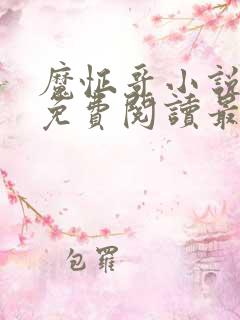 魔怔哥小說
免費閱讀最
包羅